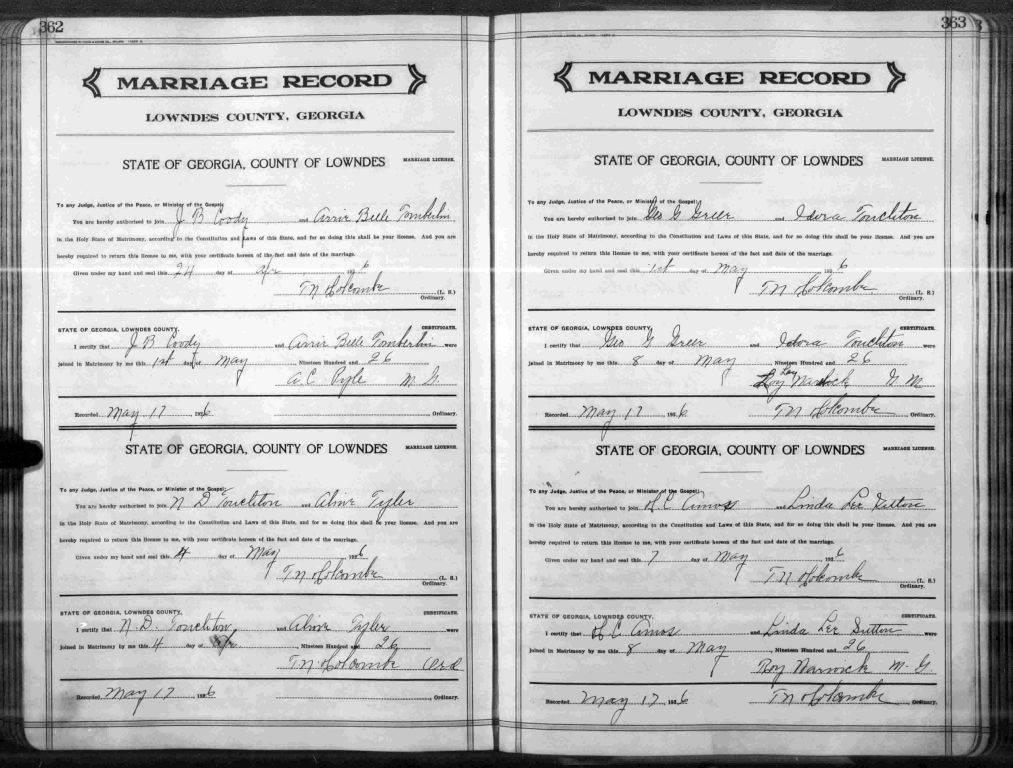 362
MARRIAGE RECORD
LOWNDES COUNTY, GEORGIA
STATE OF GEORGIA, COUNTY OF LOWNDES MARRIAGE LICENSE.
To any Judge, Justice of the Peace, or Minister of the Gospel:
You are hereby authorized to join J B Coody and Annie Belle Tomberlin
in the Holy State of Matrimony, according to the Constitution and Laws of this State, and for so doing this shall be your license. And you are
hereby required to return this license to me, with your certificate hereon of the fact and date of the marriage.
Given under my hand and seal this 24 day of Apr 1926
T N Holcombe (L. S.)
Ordinary.
STATE OF GEORGIA, LOWNDES COUNTY. CERTIFICATE.
I certify that J B Coody and Annie Belle Tomberlin were
joined in Matrimony by me this 1st day of May Nineteen Hundred and 26
A C Pyle M. G.
Recorded May 17 1926 Ordinary.
STATE OF GEORGIA, COUNTY OF LOWNDES MARRIAGE LICENSE.
To any Judge, Justice of the Peace, or Minister of the Gospel:
You are hereby authorized to join N D Touchton and Aline Tyler
in the Holy State of Matrimony, according to the Constitution and Laws of this State, and for so doing this shall be your license. And you are
hereby required to return this license to me, with your certificate hereon of the fact and date of the marriage.
Given under my hand and seal this 4 day of May 1926
T N Holcombe (L. S.)
Ordinary.
STATE OF GEORGIA, LOWNDES COUNTY. CERTIFICATE.
I certify that N. D. Touchton and Aline Tyler were
joined in Matrimony by me this 4 day of Nineteen Hundred and 26
T N Holcombe Ord
Recorded May 17 1926 , Ordinary.
363
MARRIAGE RECORD
LOWNDES COUNTY, GEORGIA
STATE OF GEORGIA, COUNTY OF LOWNDES MARRIAGE LICENSE.
To any Judge, Justice of the Peace, or Minister of the Gospel:
You are hereby authorized to join Geo G Greer and Idora Touchton
in the Holy State of Matrimony, according to the Constitution and Laws of this State, and for so doing this shall be your license. And you are
hereby required to return this license to me, with your certificate hereon of the fact and date of the marriage.
Given under my hand and seal this 1st day of May 1926
T N Holcombe (L. S.)
Ordinary.
STATE OF GEORGIA, LOWNDES COUNTY. CERTIFICATE.
I certify that Geo G Greer and Idora Touchton were
joined in Matrimony by me this 8 day of May , Nineteen Hundred and 26
Roy Warnock G M
Recorded May 17 1926 T N Holcombe Ordinary.
STATE OF GEORGIA, COUNTY OF LOWNDES MARRIAGE LICENSE.
To any Judge, Justice of the Peace, or Minister of the Gospel:
You are hereby authorized to join H. C Amos and Linda Lee Sutton
in the Holy State of Matrimony, according to the Constitution and Laws of this State, and for so doing this shall be your license. And you are
hereby required to return this license to me, with your certificate hereon of the fact and date of the marriage.
Given under my hand and seal this 7 day of May 1926
T N Holcombe (L. S.)
Ordinary.
STATE OF GEORGIA, LOWNDES COUNTY. CERTIFICATE.
I certify that H C Amos and Linda Lee Sutton were
joined in Matrimony by me this 8 day of May , Nineteen Hundred and 26
Roy Warnock M. G
Recorded May 17, 1926 T N Holcombe , Ordinary.